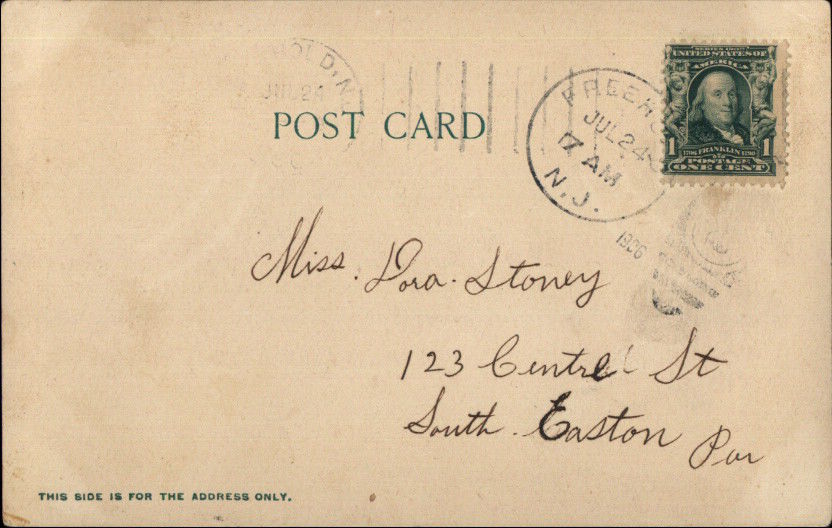 HOLD, N.
JUL 24
POST CARD
FREEHO
JUL 24
7 AM
N.J.
1906
SERIES 1902
UNITED STATES OF
AMERICA
1 1706 FRANKLIN 1790 1
POSTAGE
ONE CENT
Miss. Dora. Stoney
123 Centre St
South. Easton Pa
THIS SIDE IS FOR THE ADDRESS ONLY.